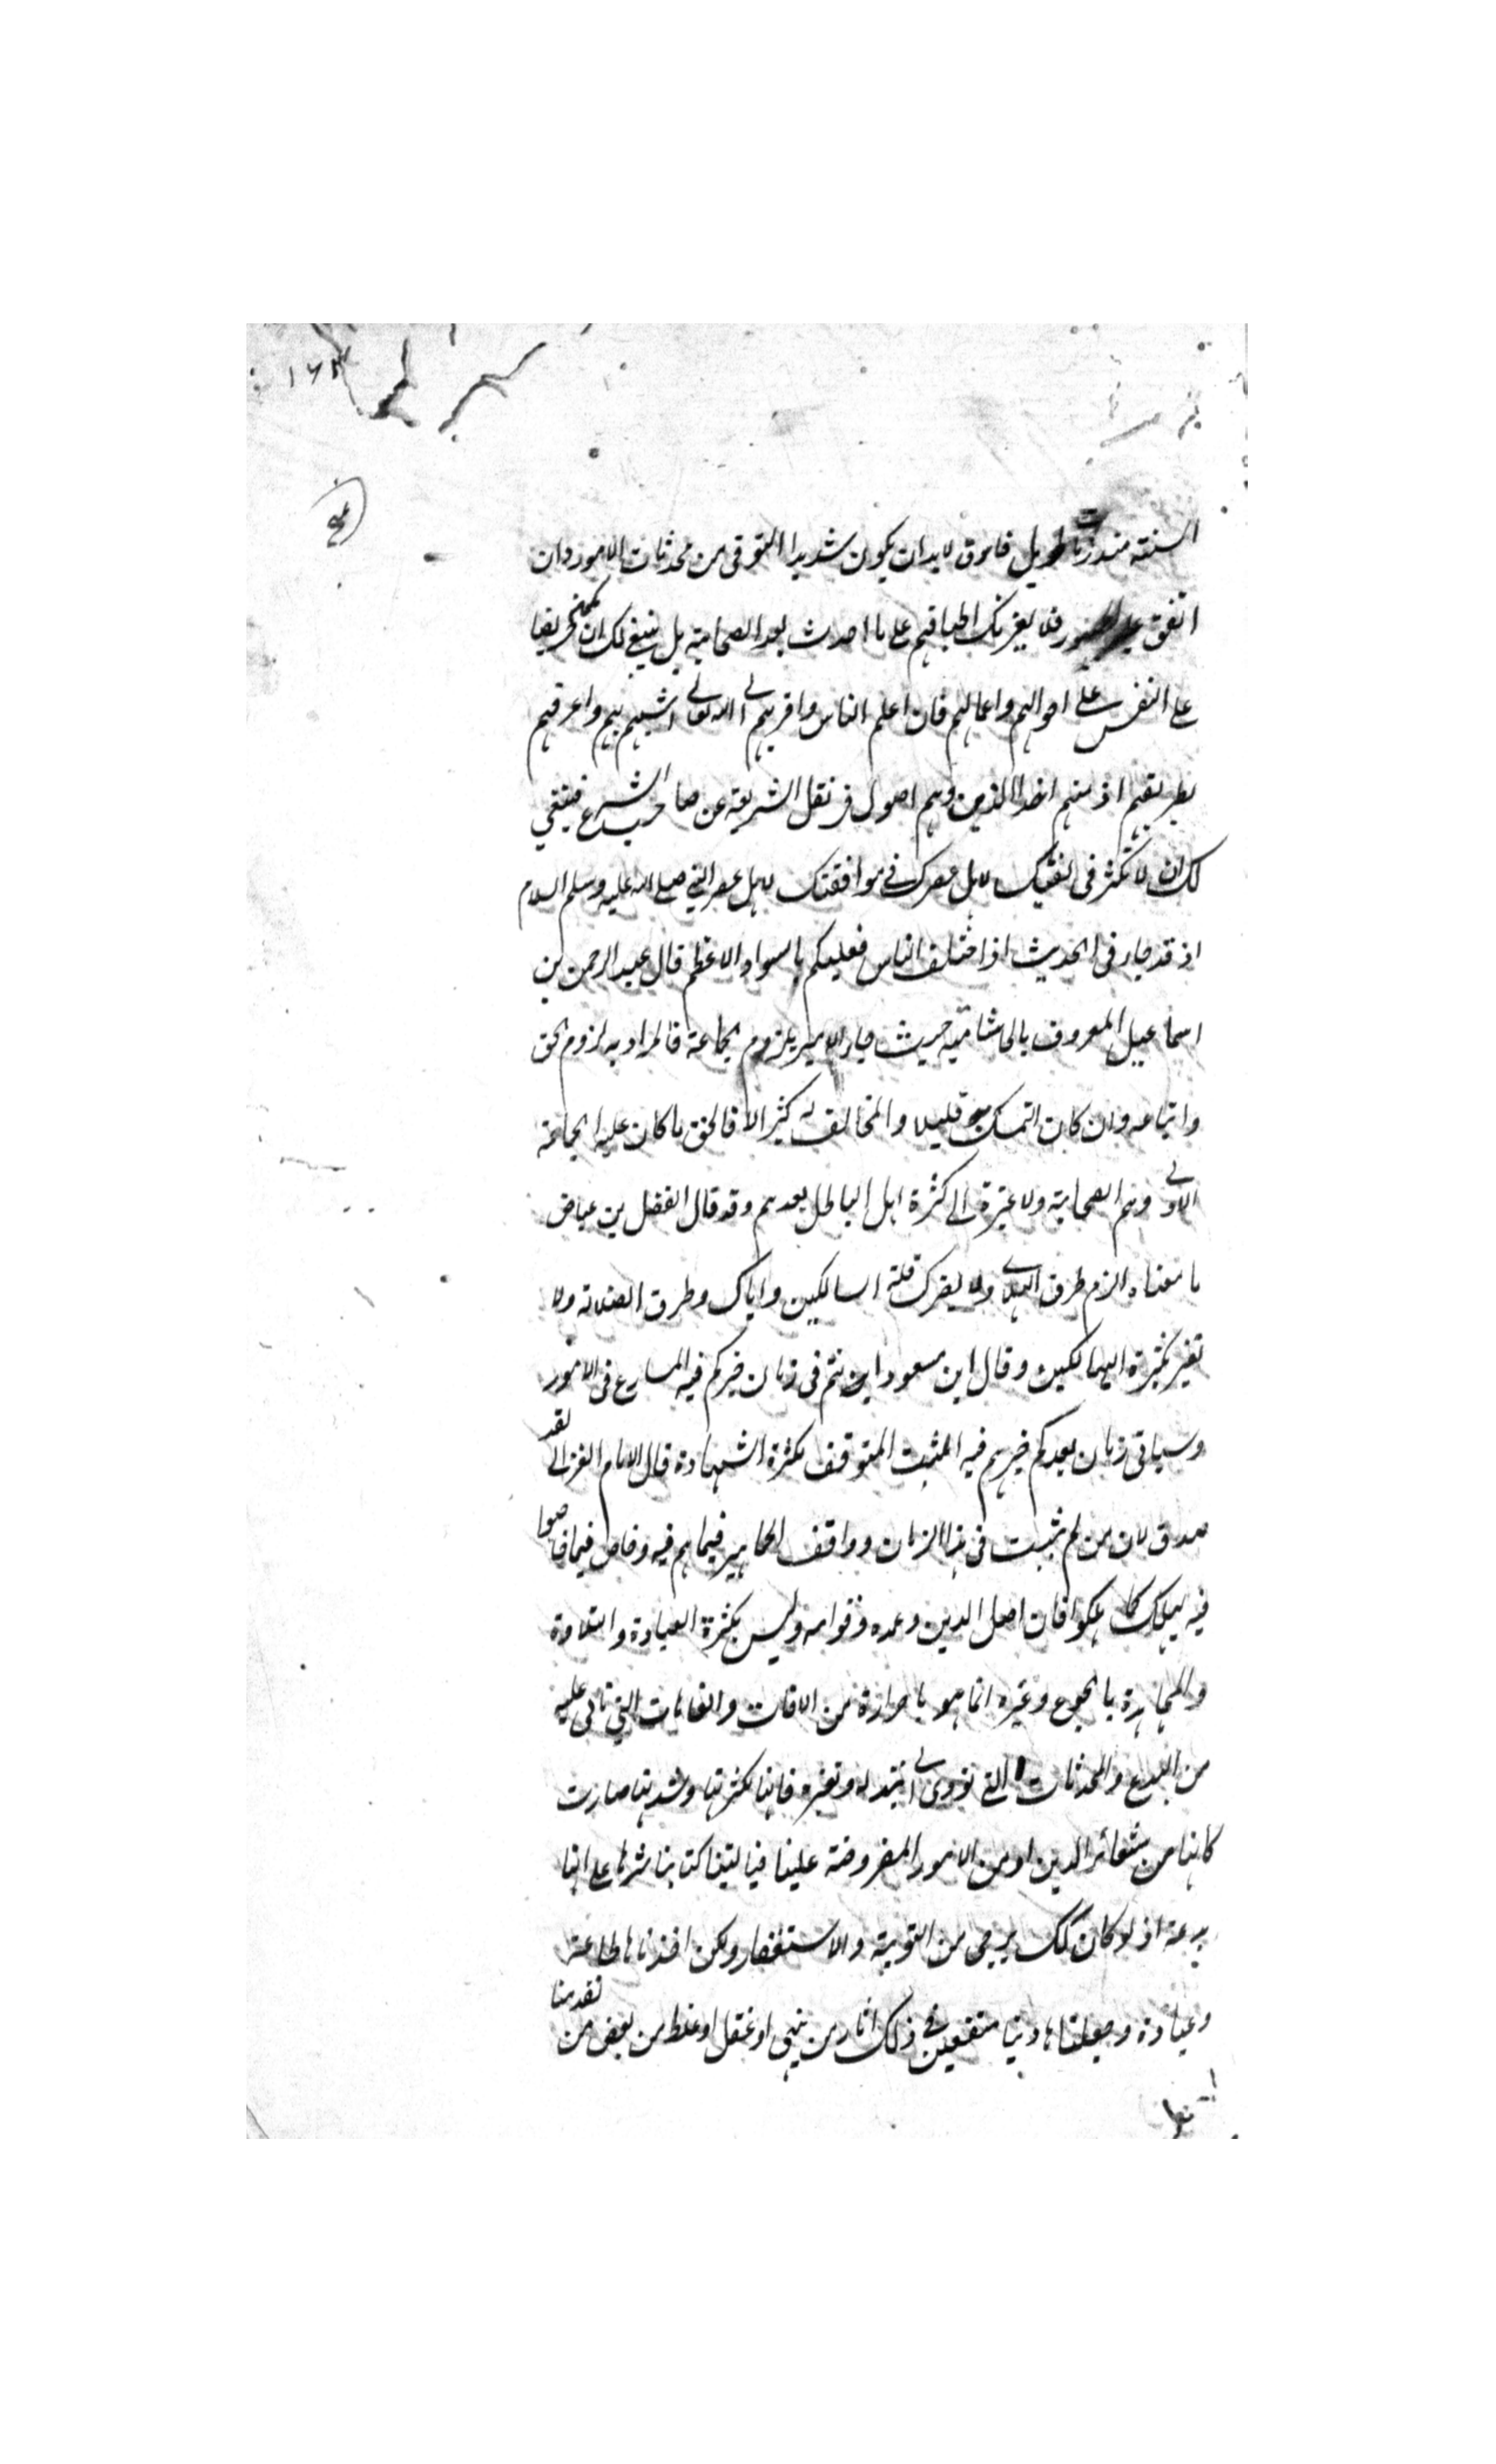 ١٦٣
السنة منذ زمان طويل فاذن لابدان يكون شديد التوقى من محدثات الامور وان
اتفق عليه الجمهور فلا يغرنك اطباقهم على ما احدث بعد الصحابة بل ينبغى لك ان تكون حريصا
على التفتيش على احوالهم واعمالهم فان اعلم الناس واقربهم الى الله تعالى اشبههم بهم واعرفهم
بطريقهم اذ منهم اخذ الدين وهم اصول فى نقل الشريعة عن صاحب الشرع فينبغى
لك ان لا تكترث فى لاهل عصرك فى موافقتك لاهل عصر النبى صلى الله عليه وسلم السلام
اذ قد جاء فى الحديث اذا اختلف الناس فعليكم بالسواد الاعظم قال عبد الرحمن بن
اسماعيل المعروف بابى شامة حيث جاء الامر بلزوم الجماعة فالمراد به لزوم الحق
واتباعه وان كان المتمسك به قليلا والمخالف له كثيرا لا فالحق ما كان عليه الجماعة
الاولى وهم الصحابة ولا عبرة الى كثرة اهل الباطل بعدهم وقد قال الفضل بن عياض
ما معناه الزم طرق الهدى ولا يغرك قلة السالكين واياك وطرق الضلالة ولا
تغتر بكثرة الهالكين وقال ابن مسعود انتم فى زمان خيركم فيه المسارع فى الامور
وسياتى زمان بعدكم خيرهم فيه المثبت المتوقف لكثرة الشبهات قال الامام الغزالى لقد
صدق لان من لم يثبت فى هذا الزمان ووافق الجماهير فيما هم فيه وخاض فيما خاضوا
فيه يهلك كما هلكوا فان اصل الدين وعمده وقوامه وليس بكثرة العبادة والتلاوة
والمجاهدة بالجوع وغيره انما هو باحرازه من الافات والعاهات التى تاتى عليه
من البدع والمحدثات التى تؤدى الى تبديله وتغيره فانها لكثرتها وشدتها صارت
كانها من شعائر الدين او من الامور المفروضة علينا فياليتنا كنا باشرناها على انها
بدعة اذ لو كان كك يرجى من التوبة والاستغفار ولكن اخذناها طاعة
وعبادة وجعلناها دينا متبعين فى ذلك اثار من نهى او غفل او غلط من بعض من تقدمنا